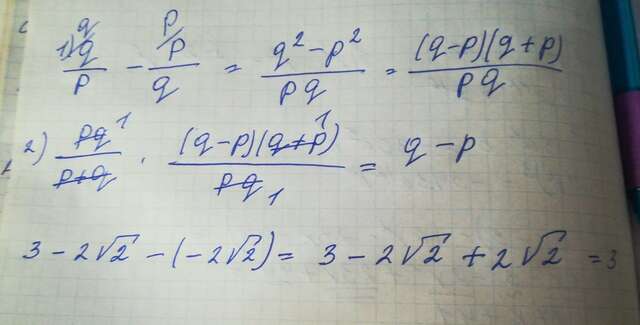 1) q/p - p/q = (q² - p²)/(pq) = ((q-p)(q+p))/(pq)
2) pq/(p+q) · ((q-p)(q+p))/(pq) = q - p
3 - 2√2 - (-2√2) = 3 - 2√2 + 2√2 = 3